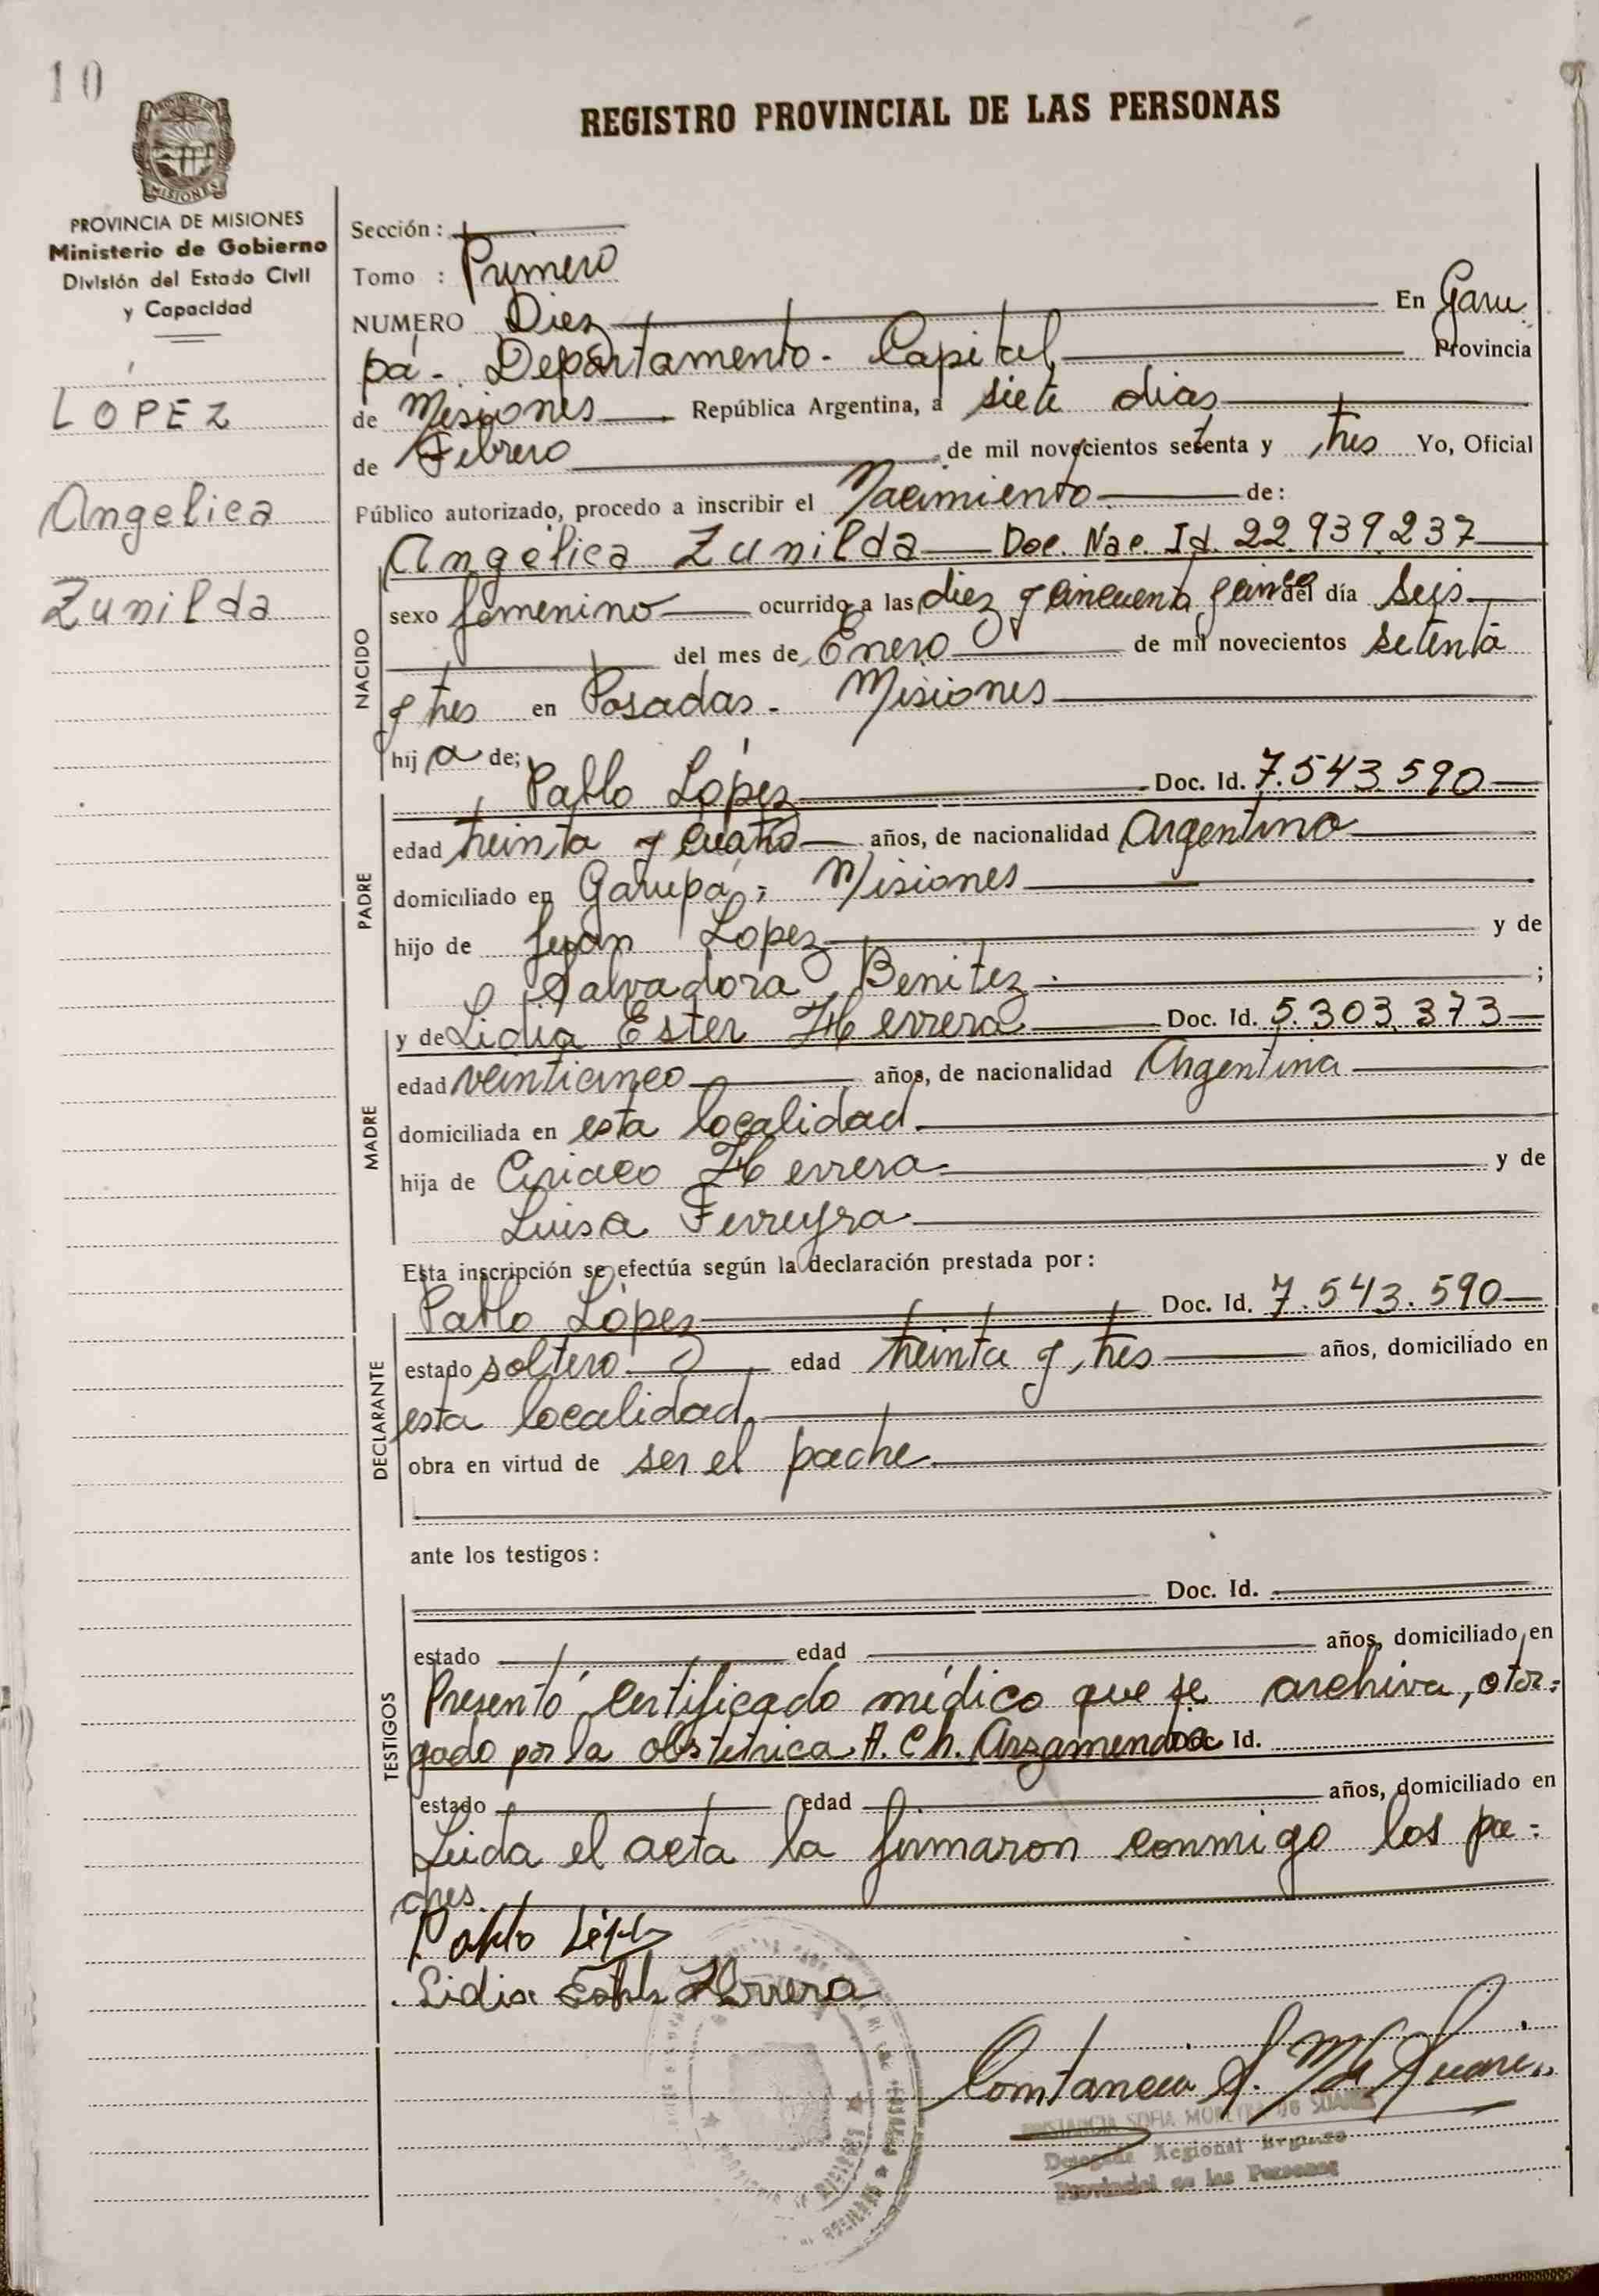 10
REGISTRO PROVINCIAL DE LAS PERSONAS
MISIONES
PROVINCIA DE MISIONES
Ministerio de Gobierno
División del Estado Civil
y Capacidad
LÓPEZ
Angelica
Zunilda
Sección :
Tomo : Primero
NUMERO Diez En Garu
pá - Departamento - Capital Provincia
de Misiones República Argentina, a siete dias
de Febrero de mil novecientos setenta y tres Yo, Oficial
Público autorizado, procedo a inscribir el Nacimiento de :
Angélica Zunilda Doc. Nac. Id. 22.939.237
NACIDO
sexo femenino ocurrido a las diez y cincuenta y cinco del día Seis
del mes de Enero de mil novecientos setenta
y tres en Posadas - Misiones
hij a de;
PADRE
Pablo López Doc. Id. 7.543.590
edad treinta y cuatro años, de nacionalidad Argentino
domiciliado en Garupá, Misiones
hijo de Juan Lopez y de
Salvadora Benitez ;
MADRE
y de Lidia Ester Herrera Doc. Id. 5.303.373
edad veinticinco años, de nacionalidad Argentina
domiciliada en esta localidad
hija de Ciriaco Herrera y de
Luisa Ferreyra
Esta inscripción se efectúa según la declaración prestada por :
DECLARANTE
Pablo López Doc. Id. 7.543.590
estado soltero edad treinta y tres años, domiciliado en
esta localidad
obra en virtud de ser el padre
ante los testigos :
TESTIGOS
Doc. Id.
estado edad años, domiciliado en
Presentó certificado médico que se archiva, otor=
gado por la obstetrica A. Ch. Arzamendia Doc. Id.
estado edad años, domiciliado en
Leida el acta la firmaron conmigo los pa=
dres.
Pablo López
Lidia Ester Herrera
Constancia S. M. de Suarez
CONSTANCIA SOFIA MOREYRA DE SUAREZ
Delegada Regional Registro
Provincial de las Personas